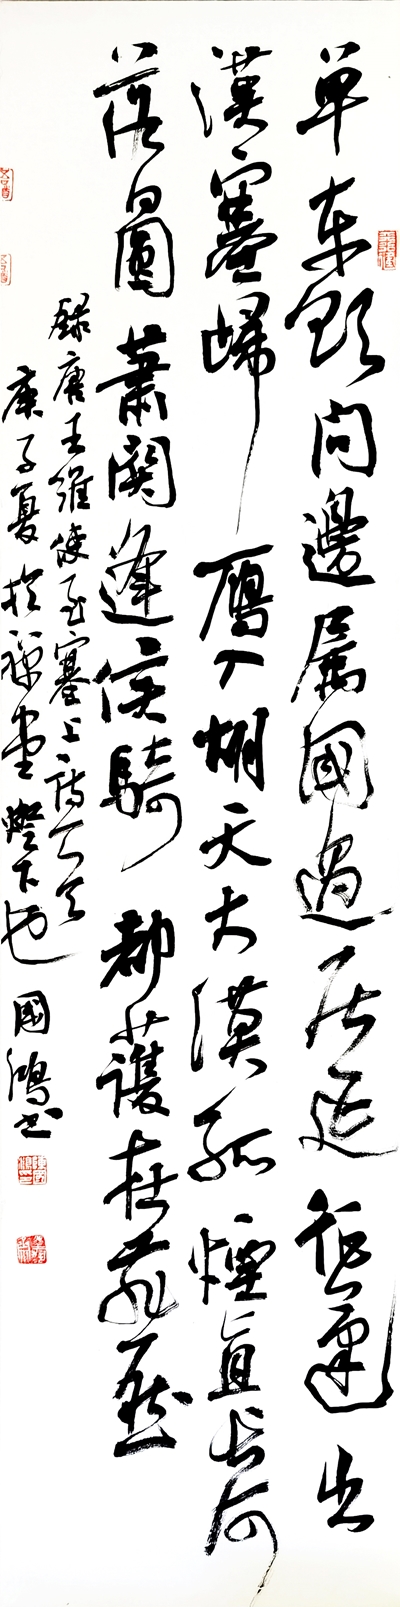 單車欲問邊屬國過居延征蓬出
漢塞歸雁入胡天大漠孤煙直長河
落日圓蕭關逢侯騎都護在燕然
錄唐王維使至塞上詩
庚子夏於禪堂燈下也國鴻書